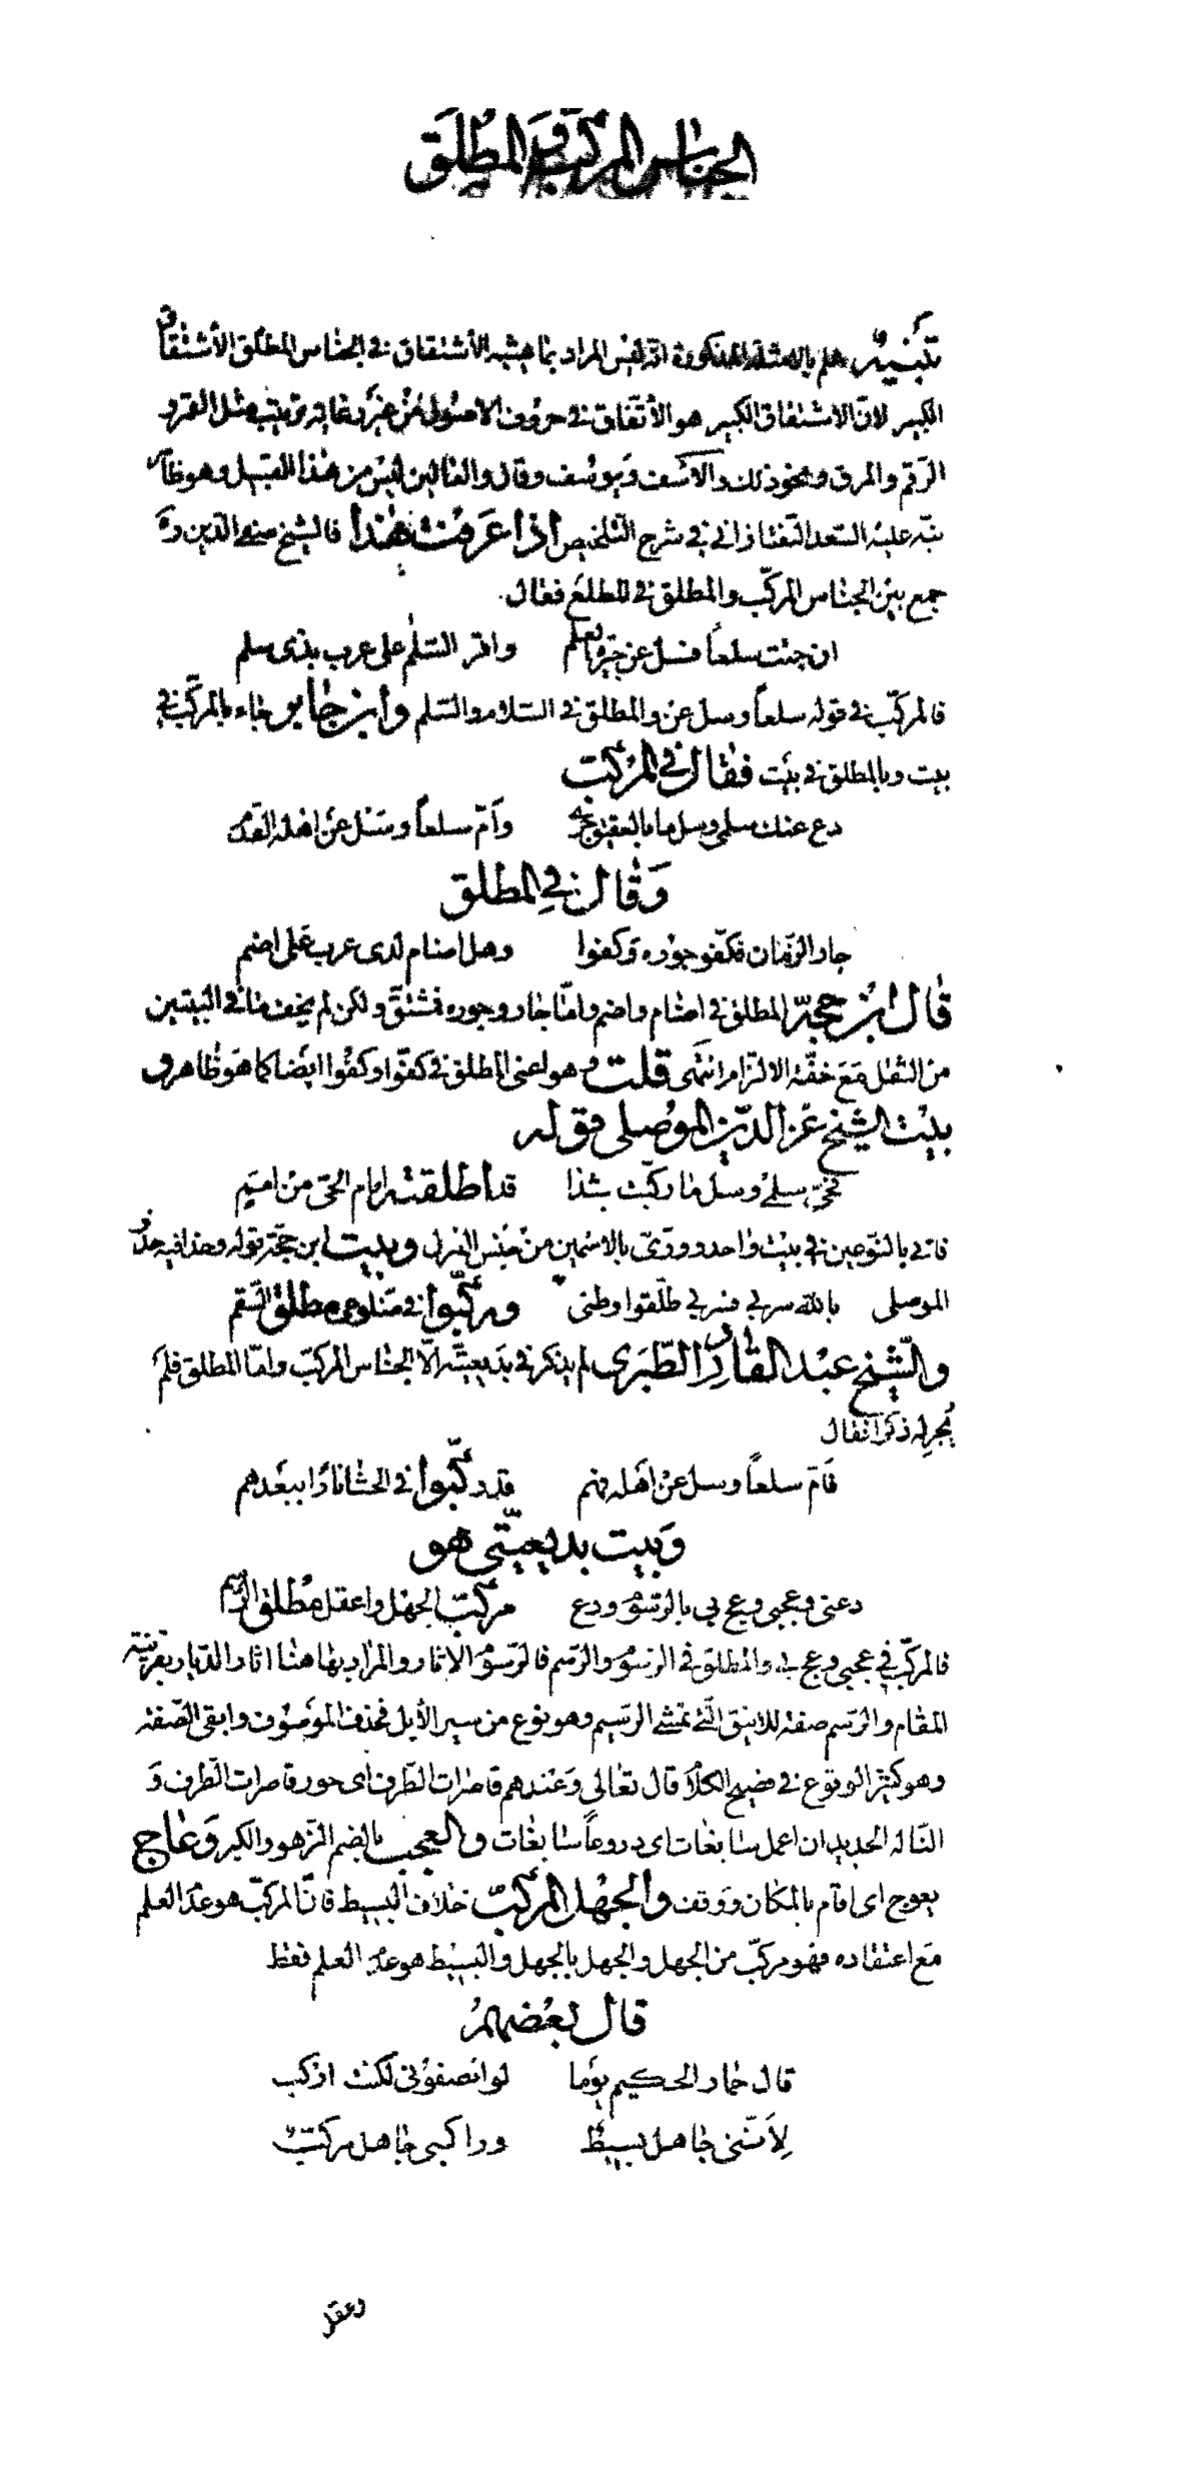 الجناس المركب والمطلق
تنبيه علم بالامثلة المذكورة انه ليس المراد بما يشبه الأشتقاق في الجناس المطلق الأشتقاق
الكبير لانّ الاشتقاق الكبير هو الأتّفاق في حروف الاصول من غير رعاية ترتيب مثل القمر و
الرّقم والمرق ونحو ذلك والاسف ويوسف وقال والقالين ليس من هذا القبيل وهو ظاهر
نبّه عليه السّعد التّفتازاني في شرح التّلخيص اذا عرفت هٰذا فالشيخ صفى الدّين ره
جمع بين الجناس المركّب والمطلق في المطلع فقال
ان جئت سلعاً فسل عن جيرة العلم واقر السّلٰم على عرب بذى سلم
فالمركّب في قوله سلعاً وسل عن والمطلق في السّلام والسّلم وابن جابر جاء بالمركّب في
بيت وبالمطلق في بيت فقال في المركّب
دع عنك سلمى وسل ما بالعقيق جرى وأمّ سلعاً وسل عن اهله القدم
وقال في المطلق
جار الزّمان فكفّو جوره وكفوا وهل اضام لدى عرب على اضم
قال ابن حجّة المطلق في اضام واضم وامّا جار وجوره فمشتقّ ولكن لم يخف ما في البيتين
من الثّقل مع خفّة الالتزام انتهى قلت وهو اعنى المطلق في كفّوا وكفوا ايضا كما هو ظاهر و
بيت الشيخ عزّ الدّين الموصلى قوله
فحىّ سلمى وسل ما ركّبت بشذا قد اطلقته امام الحىّ من امم
فاتى بالنّوعين في بيت واحد وورّى بالاسمين من جنس الغزل وبيت ابن حجّة قوله وحذا فيه حذو
الموصلى بالله سر بي فسربي طلّقوا وطنى وركّبوا في ضلوعى مطلق السّقم
والشّيخ عبد القادر الطّبرى لم يذكر في بديعيّته الّا الجناس المركّب وامّا المطلق فلم
يجر له ذكرا فقال
فأمّ سلعاً وسل عن اهله فهم قد ركّبوا في الحشا نارا ببعدهم
وبيت بديعيّتى هو
دعنى وعجبى وعج بي بالرّسوم ودع مركّب الجهل واعقل مطلق الرّسم
فالمركّب في عجبى وعج بي والمطلق في الرّسوم والرّسم فالرّسوم الاثار والمراد بها هنا اثار الدّيار بقرينة
المقام والرّسم صفة للاينق الّتى تمشى الرّسيم وهو نوع من سير الأبل فحذف الموصوف وابقى الصّفة
وهو كثير الوقوع في فصيح الكلام قال تعالى وعندهم قاصرات الطّرف اى حور قاصرات الطّرف و
النّا له الحديد ان اعمل سابغات اى دروعاً سابغات والعجب بالضم الزّهو والكبر وعاج
يعوج اى اقام بالمكان ووقف والجهل المركّب خلاف البسيط فانّ المركّب هو عدم العلم
مع اعتقاده فهو مركّب من الجهل والجهل بالجهل والبسيط هو عدم العلم فقط
قال بعضهم
قال حمار الحكيم يوما لو انصفونى لكنت اركب
لأنّنى جاهل بسيط وراكبى جاهل مركّب
وعقل